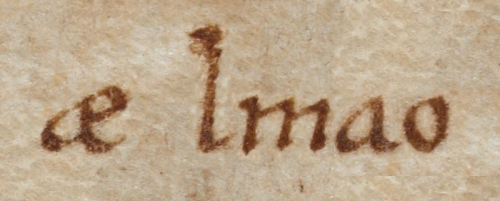 æ lmao